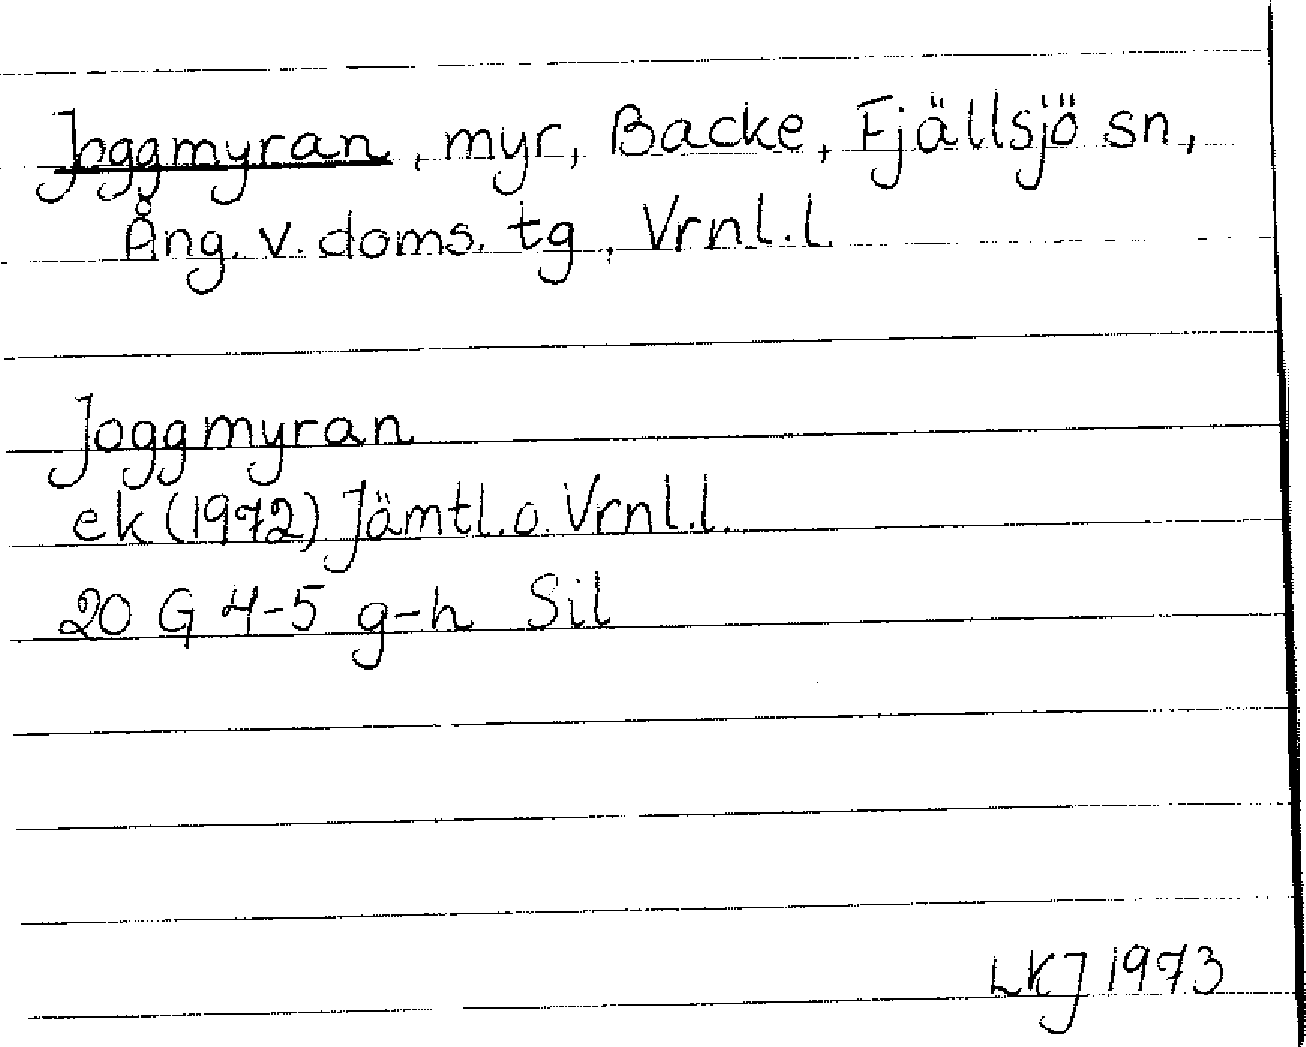 Joggmyran, myr, Backe, Fjällsjö sn,
Ång. v. doms. tg, Vrnl.l.
Joggmyran
ek (1972) Jämtl. o. Vrnl.l.
20 G 4-5 g-h Sil
LKJ 1973